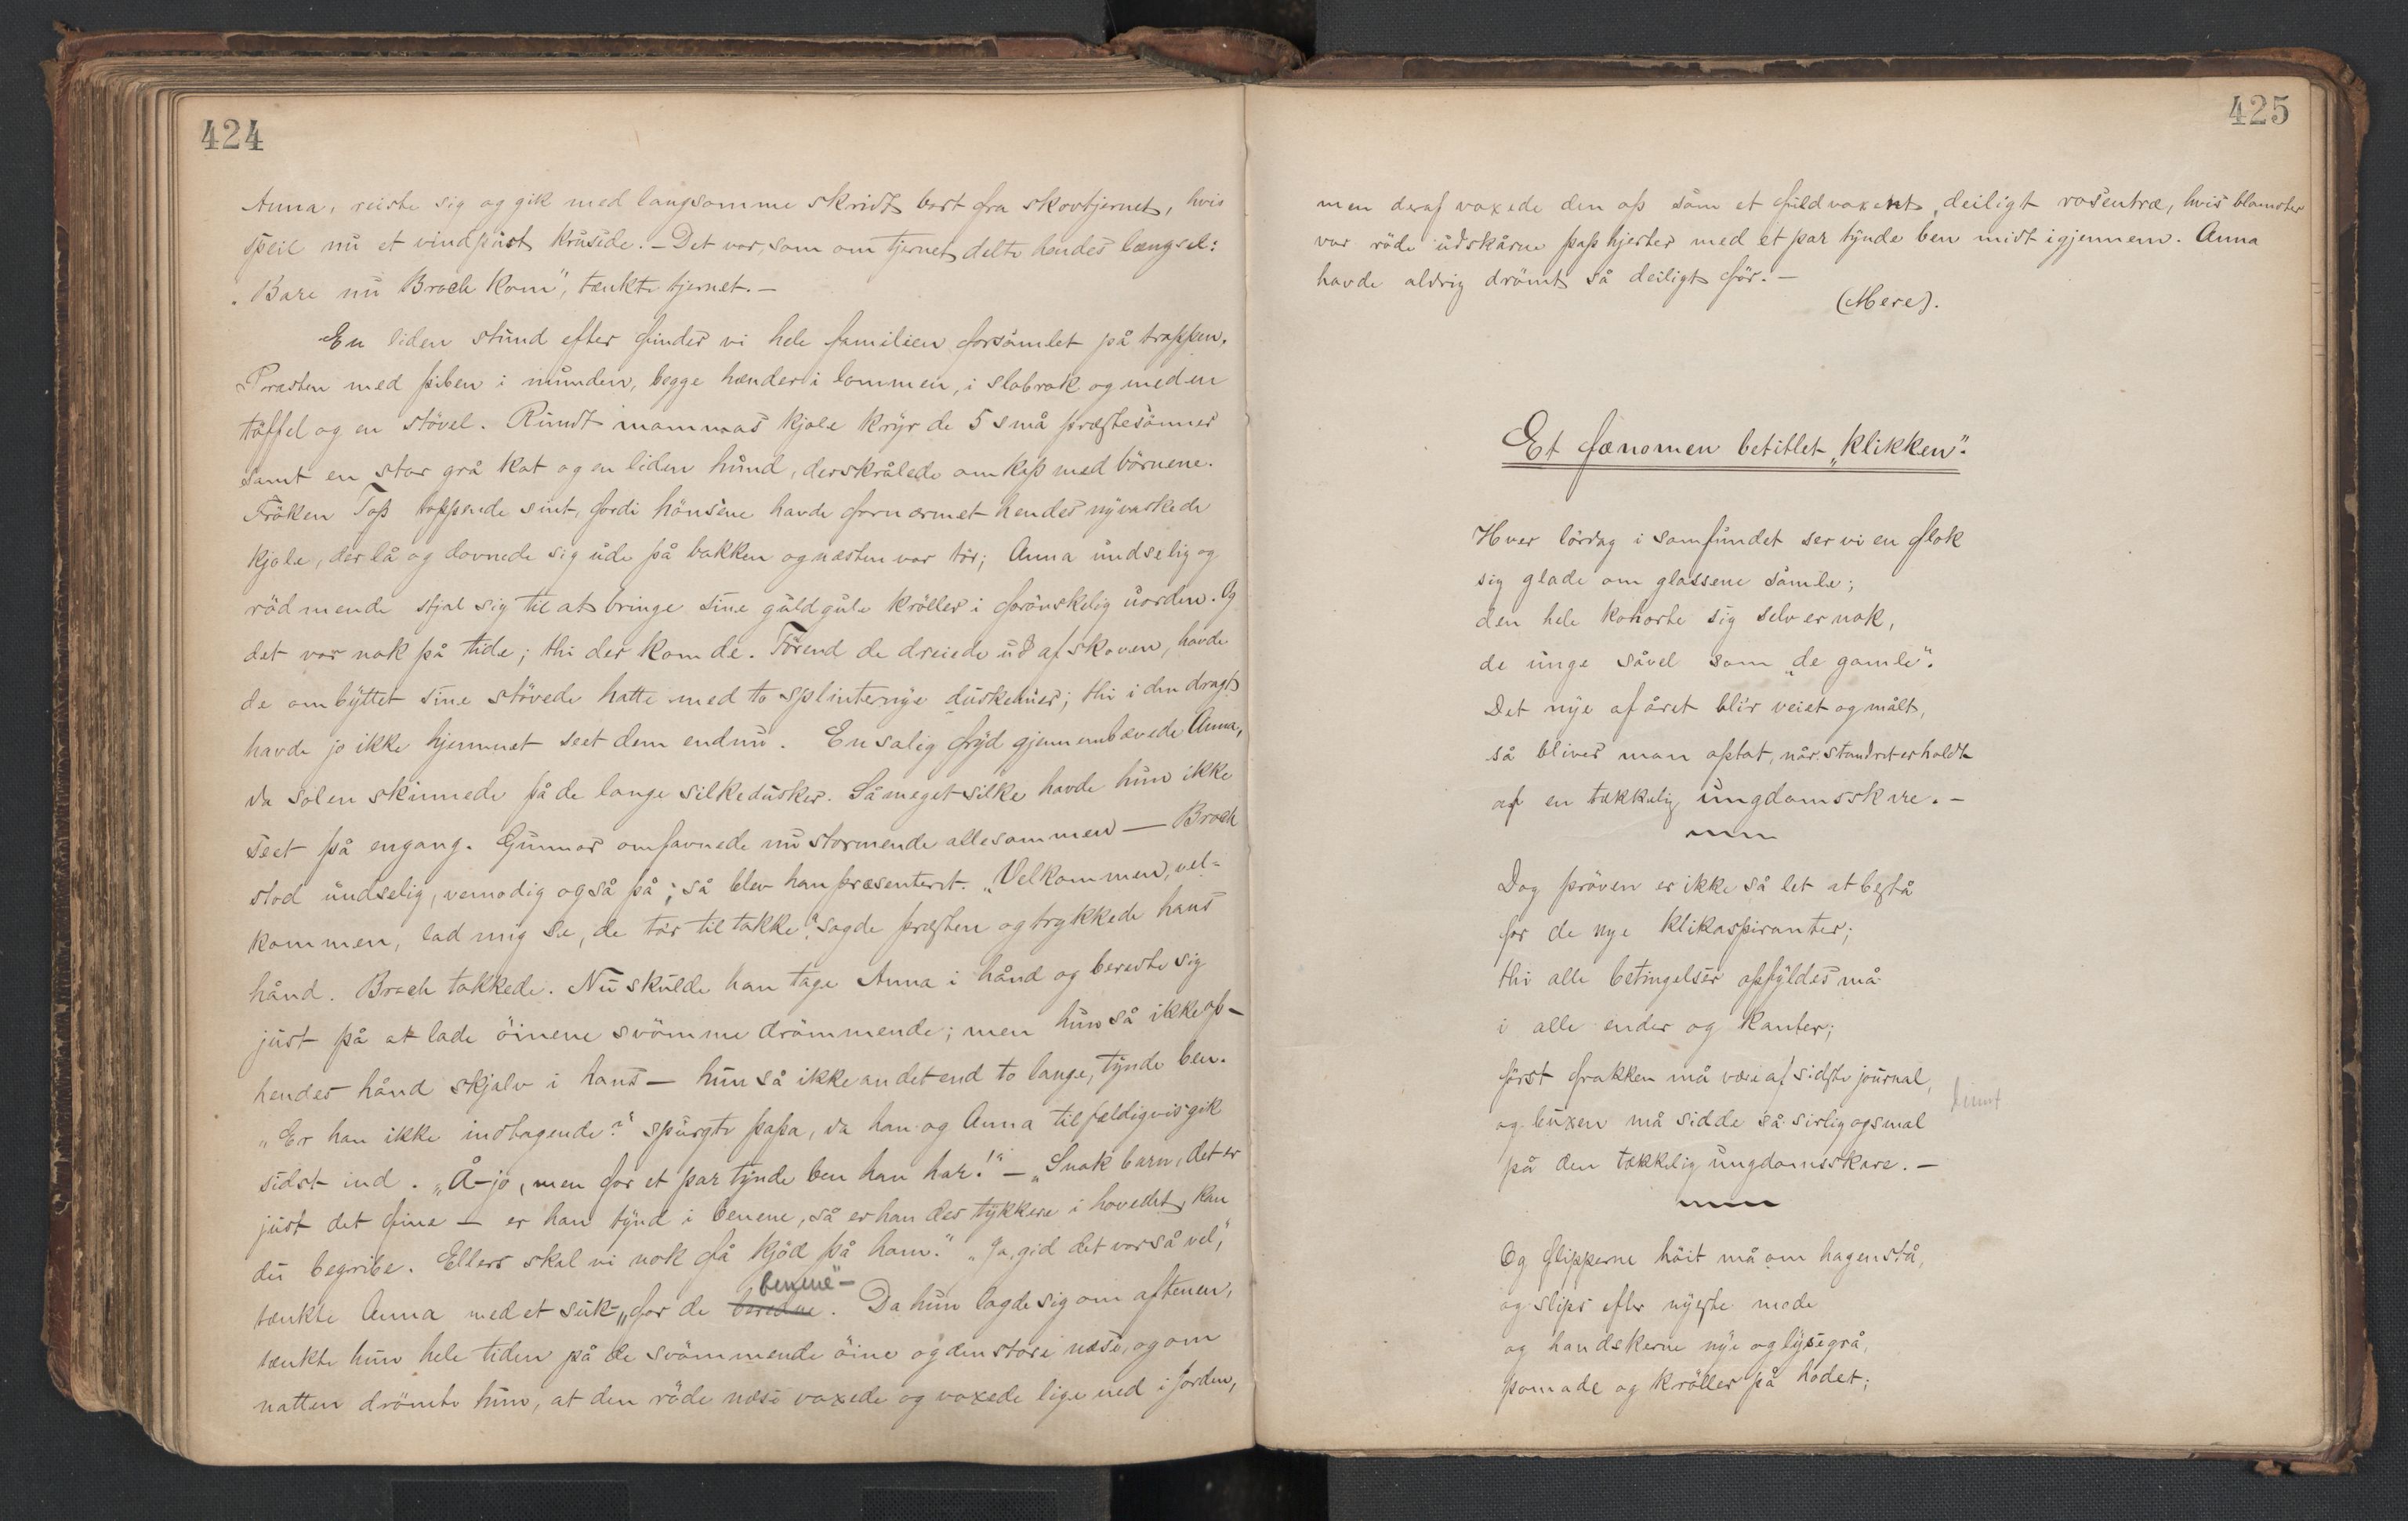 424
Anna, reiste sig og gik med langsomme skridt bort fra skovtjernet, hvis
speil nu et vindpust krusede. – Det var, som om tjernet delte hendes længsel:
"Bare nu Broch kom", tænkte tjernet. –
En liden stund efter finder vi hele familien forsamlet på trappen.
Præsten med piben i munden, begge hænder i lommen, i slobrok og med en
töffel og en stövel. Rundt mammas kjole kryr de 5 små præstesönner
samt en stor grå kat og en liden hund, der skrålede om kap med börnene.
Fröken Top hoppende sint, fordi hönsene havde fornærmet hendes nyvaskede
kjole, der lå og dovnede sig ude på bakken og næsten var tör; Anna undselig og
rödmende stjal sig til at bringe sine guldgule kröller i förönskelig uorden. Og
det var nok på tide; thi der kom de. Förend de dreiede ud af skoven, havde
de ombyttet sine stövede hatte med to splinternye duskeluer; thi i den dragt
havde jo ikke hjemmet seet dem endnu. En salig fryd gjennembævede Anna,
da solen skinnede på de lange silkedusker. Så meget silke havde hun ikke
seet på engang. Gunnar omfavnede nu stormende allesammen — Broch
stod undselig, vemodig og så på; så blev han præsenteret. "Velkommen, vel-
kommen, lad mig se, de tar til takke" sagde præsten og trykkede hans
hånd. Broch takkede. Nu skulde han tage Anna i hånd og beredte sig
just på at lade öinene svömme drömmende; men hun så ikke op –
hendes hånd skjalv i hans – hun så ikke andet end to lange, tynde ben.
"Er han ikke indtagende?" spurgte papa, da han og Anna tilfældigvis gik
sidst ind. "Å-jo, men for et par tynde ben han har!" – "Snak barn, det er
just det fine – er han tynd i benene, så er han des tykkere i hovedet, kan
du begribe. Ellers skal vi nok få kjöd på ham." "Ja, gid det var så vel,"
tænkte Anna med et suk – "for de benene" –. Da hun lagde sig om aftenen,
tænkte hun hele tiden på de svömmende öine og den store næse, og om
natten drömte hun, at den röde næse voxede og voxede lige ned i jorden,
425
men deraf voxede den op som et fuldvoxent, deiligt rosentræ, hvis blomster
var röde udskårne paphjerter med et par tynde ben midt igjennem. Anna
havde aldrig drömt så deiligt för. –
(Mere).
Et fænomen betitlet "Klikken".
Hver lördag i samfundet ser vi en flok
sig glade om glassene samle;
den hele kohorte sig selv er nok,
de unge såvel som "de gamle".
Det nye af året blir veiet og målt,
så bliver man optat, når standret er holdt
af en tækkelig ungdomsskare. –
Dog pröven er ikke så let at bestå
for de nye klikaspiranter;
thi alle betingelser opfyldes må
i alle ender og kanter;
först frakken må være af sidste journal,
og buxen må sidde så sirlig og smal
på den tækkelig ungdomsskare. –
Og flipperne höit må om hagen stå,
og slips efter nyeste mode
og handskerne nye og lysegrå,
pomade og kröller på hodet;